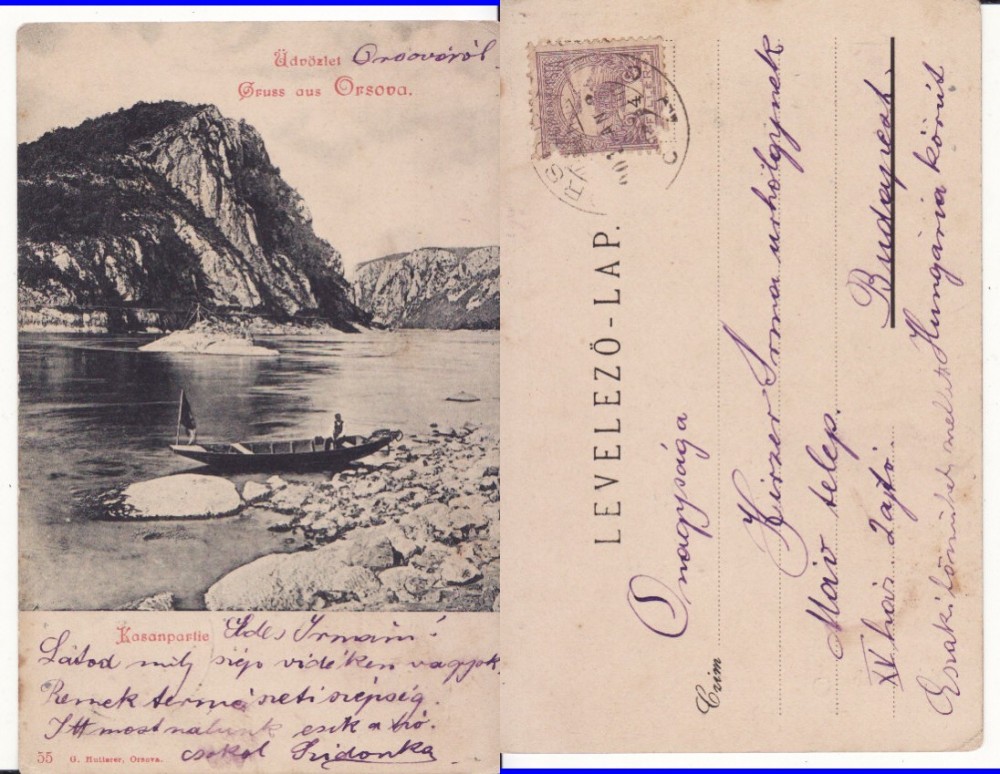 Üdvözlet Orsováról.
Gruss aus Orsova.
Kasanpartie Edes Irmám!
Látod mily szép vidéken vagyok,
Remek természeti szépség.
Itt most nálunk esik a hó.
csókol Szidonka
55 G. Hutterer, Orsova.
LEVELEZŐ-LAP.
Onagysága
Czim
Hirzer Irma urhölgynek
Máv telep.
Budapest.
XV ház 2 ajtó.
Eszaki főműhely mellett Hungária körút